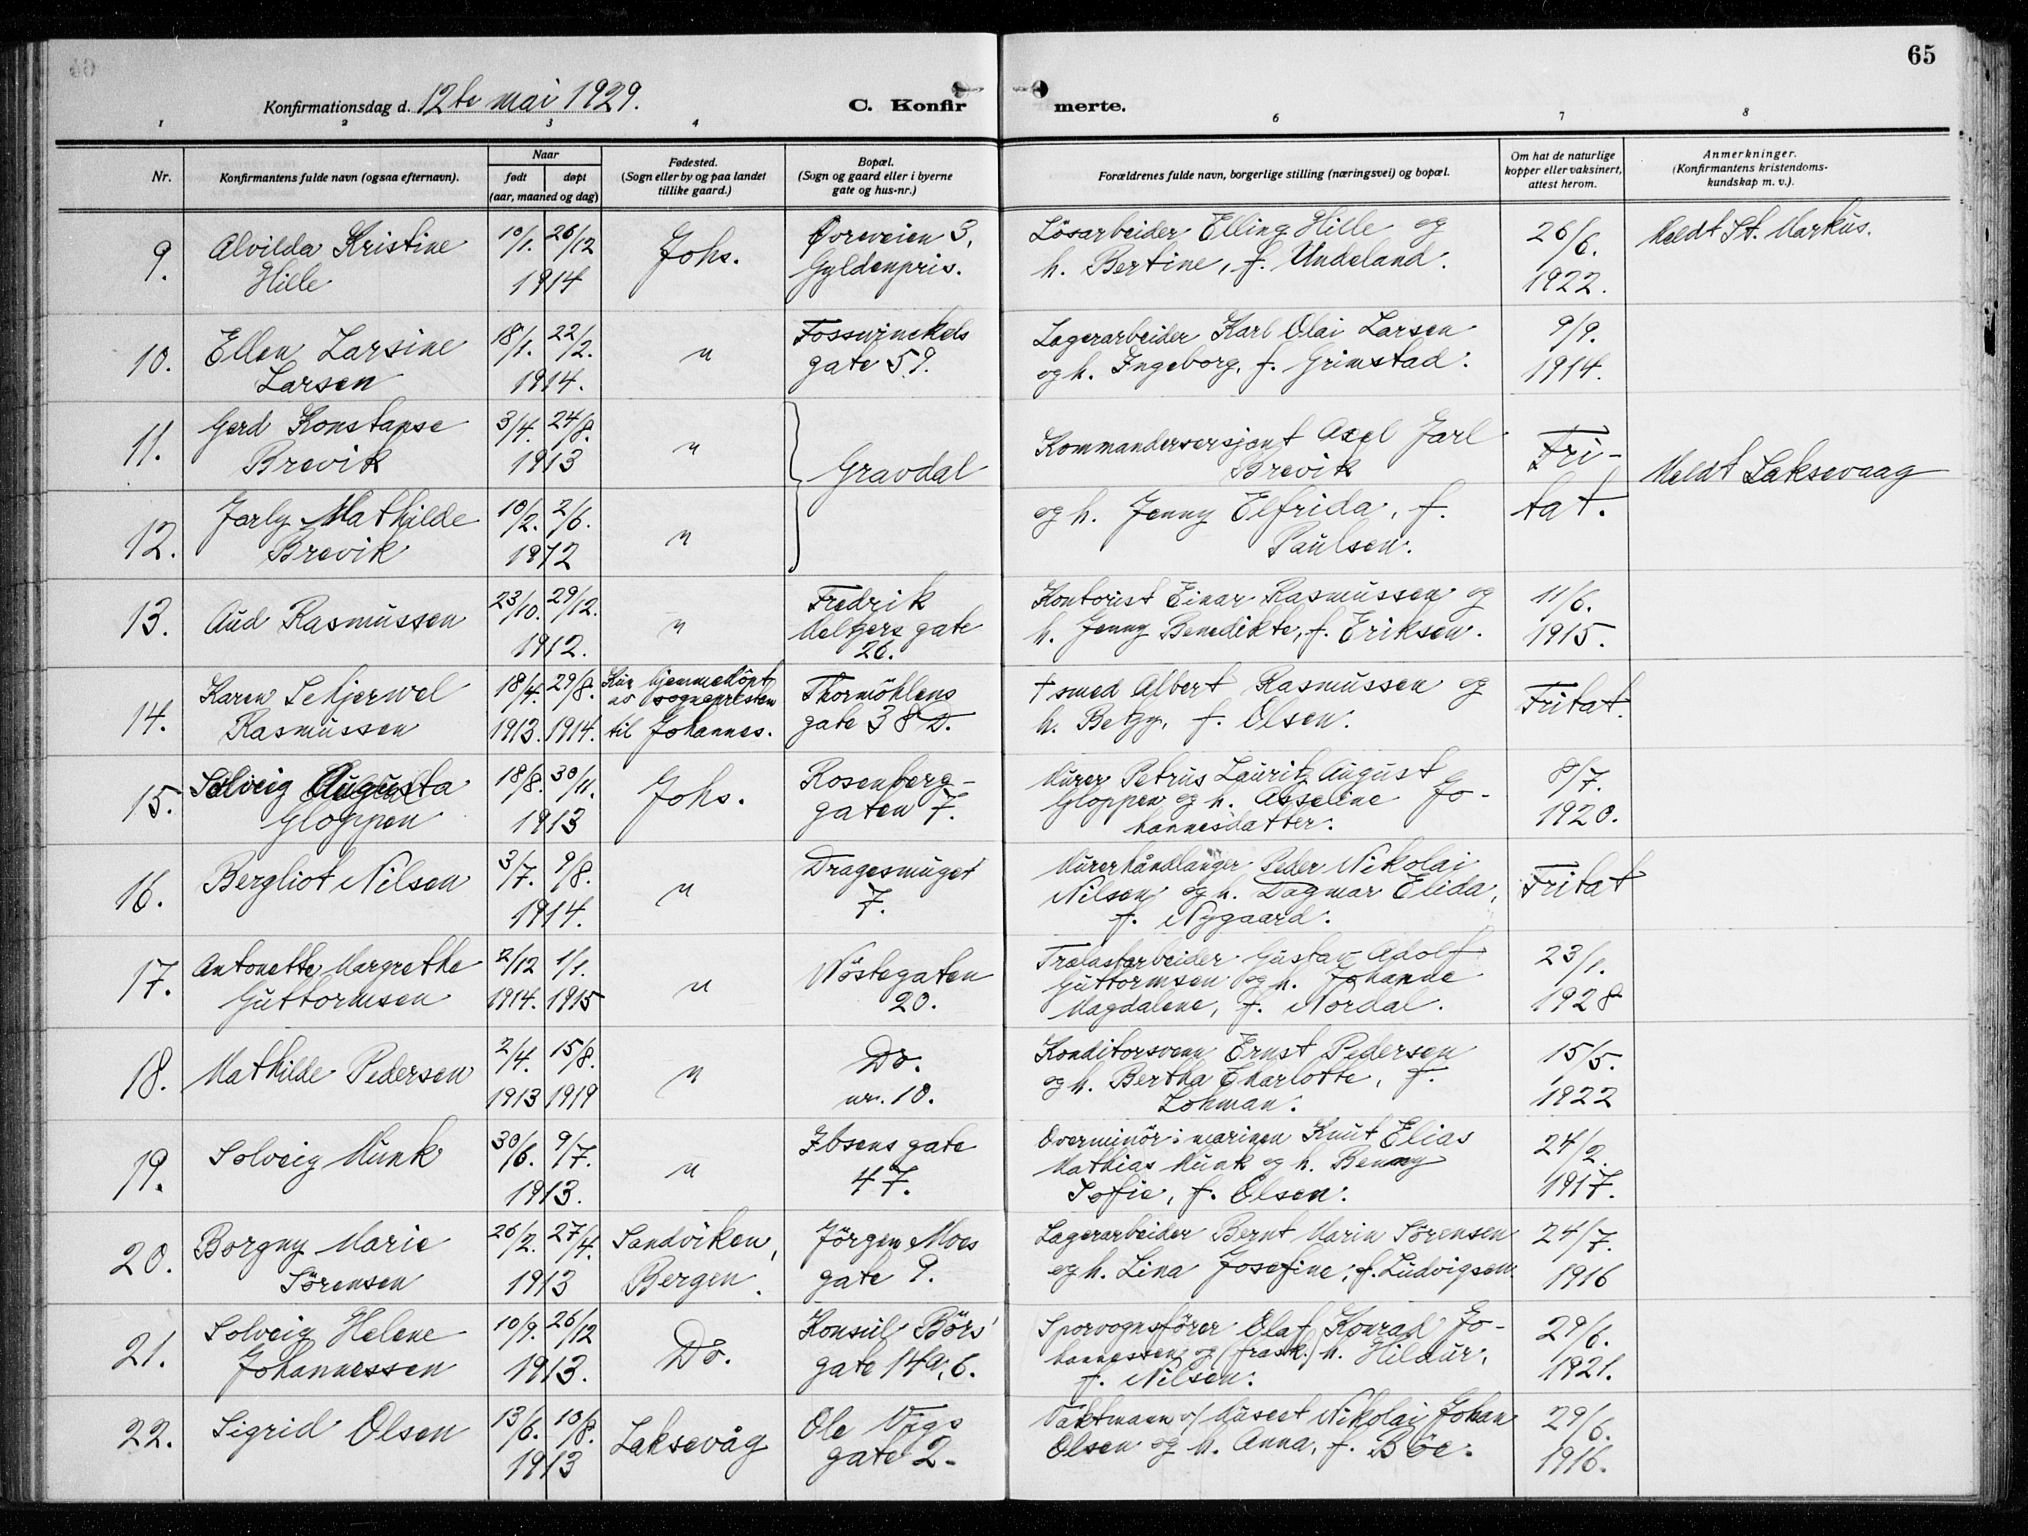 65
Konfirmationsdag d. 12te mai 1929.
C. Konfirmerte.
1 2 3 4 6 7 8
Nr.
Konfirmantens fulde navn (ogsaa efternavn).
Naar
født
døpt
(aar, maaned og dag)
Fødested.
(Sogn eller by og paa landet
tillike gaard.)
Bopæl.
(Sogn og gaard eller i byerne
gate og hus-nr.)
Forældrenes fulde navn, borgerlige stilling (næringsvei) og bopæl.
Om hat de naturlige
kopper eller vaksinert,
attest herom.
Anmerkninger.
(Konfirmantens kristendoms-
kundskap m. v.).
9.
Alvilda Kristine
Hille
10/1. 26/12
1914
Johs.
Øvreveien 3,
Gyldenpris.
Lösarbeider Elling Hille og
h. Bertine, f. Undeland.
26/6.
1922.
Meldt St. Markus.
10.
Ellen Larsine
Larsen
18/1. 22/2.
1914.
"
Fosswinckels
gate 59.
Lagerarbeider Karl Olai Larsen
og h. Ingeborg, f. Grimstad.
9/9.
1914.
11.
Gerd Konstanse
Brevik
3/4. 24/8.
1913
"
Gravdal
Kommandersersjant Axel Jarl
Brevik
Fri-
Meldt Laksevaag
12.
Jarly Mathilde
Brevik
10/2. 2/6.
1912
"
og h. Jenny Elfrida, f.
Paulsen.
tat.
13.
Aud Rasmussen
23/10. 29/12.
1912.
"
Fredrik
Meltzers gate
26.
Kontorist Einar Rasmussen og
h. Jenny Benedikte, f. Eriksen.
11/6.
1915.
14.
Karen Schjerwel
Rasmussen
18/4. 29/8.
1913. 1914.
hjemmedöpt
av sognepresten
til Johannes.
Thormöhlens
gate 38 D.
† smed Albert Rasmussen og
h. Betzy, f. Olsen.
Fritat.
15.
Solveig Augusta
Gloppen
18/8. 30/11.
1913
Johs.
Rosenberg-
gaten 7.
Murer Petrus Lauritz August
Gloppen og h. Asseline Jo-
hannesdatter.
8/7.
1920.
16.
Bergliot Nilsen
3/7. 9/8.
1914.
"
Dragesmuget
7.
Murerhåndlanger Peder Nikolai
Nilsen og h. Dagmar Elida,
f. Nygaard.
Fritat
17.
Antonette Margrethe
Guttormsen
2/12 1/1.
1914. 1915
"
Nöstegaten
20.
Trælastarbeider Gustav Adolf
Guttormsen og h. Johanne
Magdalene, f. Nordal.
23/1.
1928
18.
Mathilde Pedersen
2/4. 15/8.
1913 1919
"
Do.
nr. 10.
Konditorsvenn Ernst Pedersen
og h. Bertha Charlotte, f.
Lohman.
15/5.
1922
19.
Solveig Munk
30/6. 9/7.
1913.
"
Ibsens gate
47.
Overminör i marinen Knut Elias
Mathias Munk og h. Benny
Sofie, f. Olsen.
24/2.
1917.
20.
Borgny Marie
Sörensen
26/2. 27/4.
1913
Sandviken,
Bergen.
Jörgen Moes
gate 9.
Lagerarbeider Bernt Marin Sörensen
og h. Lina Josefine, f. Ludvigsen.
24/7.
1916
21.
Solveig Helene
Johannessen
10/9. 26/12
1913.
Do.
Konsul Börs'
gate 14a, 6.
Sporvognsförer Olaf Konrad Jo-
hannessen og (frask.) h. Hildur,
f. Nilsen.
29/6.
1921.
22.
Sigrid Olsen
13/6. 10/8.
1913
Laksevåg
Ole Vigs
gate 2.
Vaktmann v/ Museet Nikolai Johan
Olsen og h. Anna, f. Böe.
29/6.
1916.